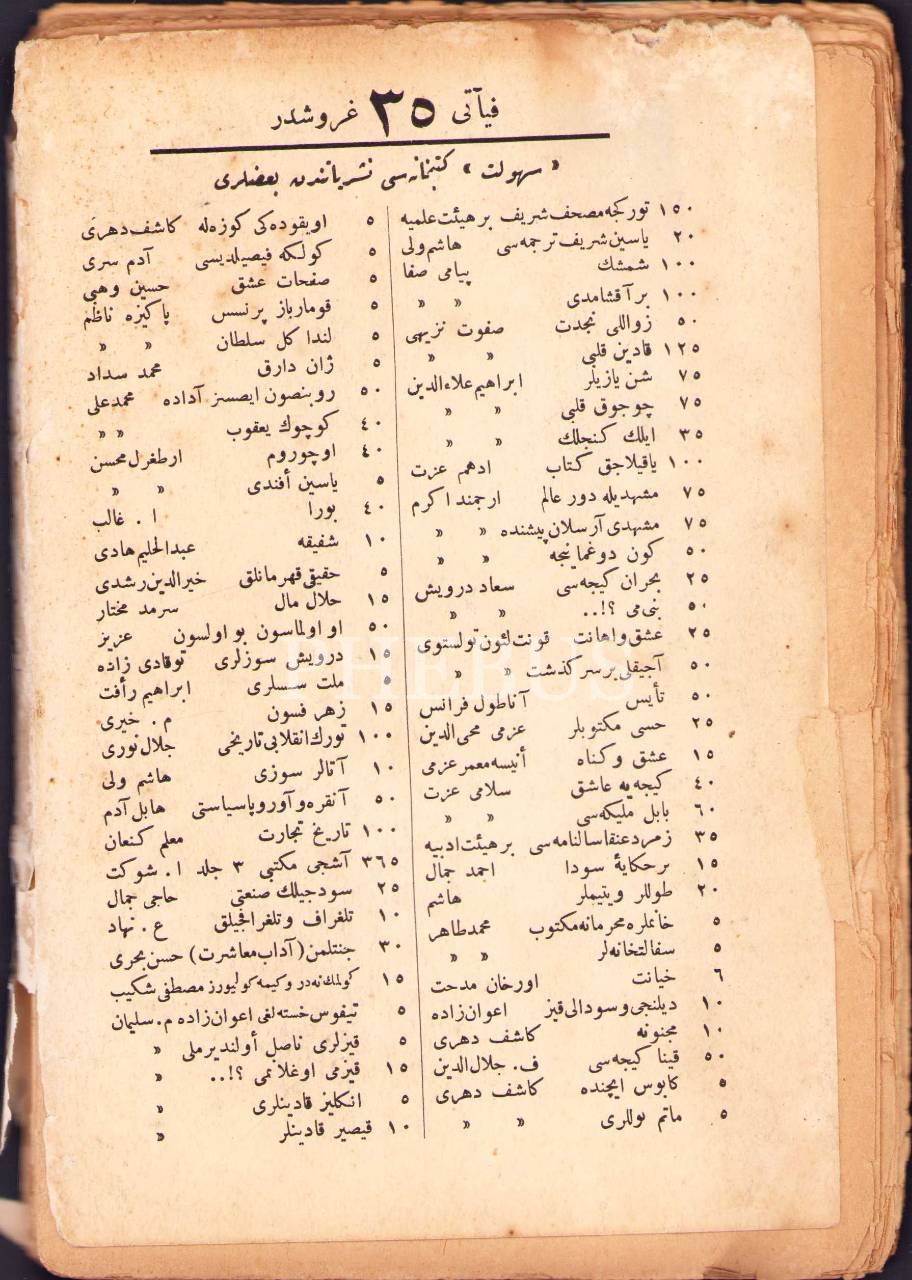 فيآتی ٣٥ غروشدر
« سهولت » كتبخانه سی نشرياتندن بعضلری
١٥٠ توركجه مصحف شريف بر هيئت علميه
٢٠ ياسين شريف ترجمه سی هاشم ولی
١٠٠ شمشك پيامی صفا
١٠٠ بر آقشامدی » »
٥٠ زواللی نجدت صفوت نزيهی
١٢٥ قادين قلبی » »
٧٥ شن يازيلر ابراهيم علاءالدين
٧٥ چوجوق قلبی » »
٣٥ ايلك كنجلك » »
١٠٠ ياقيلاجق كتاب ادهم عزت
٧٥ مشهديله دور عالم ارجمند اكرم
٧٥ مشهدی آرسلان پيشنده » »
٥٠ كون دوغماينجه » »
٢٥ بحران كيجه سی سعاد درويش
٥٠ بنی می ؟!.. » »
٢٥ عشق و اهانت قونت لئون تولستوی
٥٠ آجيقلی بر سر كذشت » »
٥٠ تأيس آناطول فرانس
٢٥ حسی مكتوبلر عزمی محی الدين
١٥ عشق و كناه أنيسه معمر عزمی
٤٠ كيجه يه عاشق سلامی عزت
٦٠ بابل مليكه سی » »
٣٥ زمرد عنقا سالنامه سی بر هيئت ادبيه
١٥ بر حكايۀ سودا احمد جمال
٢٠ طوللر ويتيملر هاشم
٥ خانملره محرمانه مكتوب محمد طاهر
٥ سفالتخانه لر » »
٦ خيانت اورخان مدحت
١٠ ديلنجی و سودالی قيز اعوان زاده
١٠ مجنونه كاشف دهری
٥٠ قينا كيجه سی ف. جلال الدين
٥ كابوس ايچنده كاشف دهری
٥ ماتم يوللری » »
٥ اويقوده كی كوزه له كاشف دهری
٥ كولكه فيصيلديسی آدم سری
٥ صفحات عشق حسين وهبی
٥ قومارباز پرنسس پاكيزه ناظم
٥ لندا كل سلطان » »
٥ ژان دارق محمد سداد
٥٠ روبنصون ايصسز آداده محمد علی
٤٠ كوچوك يعقوب » »
٤٠ اوچوروم ارطغرل محسن
٥ ياسين أفندی » »
٤٠ بورا ا . غالب
١٠ شفيقه عبدالحليم هادی
٥ حقيقی قهرمانلق خيرالدين رشدی
١٥ حلال مال سرمد مختار
٥٠ او اولماسون بو اولسون عزيز
١٥ درويش سوزلری توقادی زاده
٥ ملت سسلری ابراهيم رأفت
١٥ زهر فسون م . خيری
١٠٠ تورك انقلابی تاريخی جلال نوری
١٠ آتالر سوزی هاشم ولی
٥٠ آنقره و آوروپا سياستی هابل آدم
١٠٠ تاريخ تجارت معلم كنعان
٣٦٥ آشجی مكتبی ٣ جلد ا . شوكت
٢٥ سودجيلك صنعتی حاجی جمال
١٠ تلغراف و تلغرافجيلق ع . نهاد
٣٠ جنتلمن (آداب معاشرت) حسن بحری
١٥ كولمك نه در و كيمه كوليورز مصطفی شكيب
٥ تيفوس خسته لغی اعوان زاده م. سليمان
٥ قيزلری ناصل أولنديرملی »
١٥ قيزمی اوغلانمی ؟!.. »
٥ انكليز قادينلری »
١٠ قيصير قادينلر »
PHEBUS